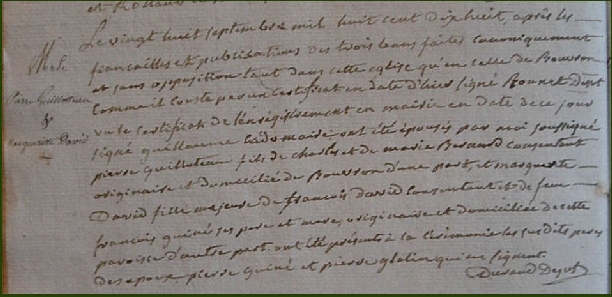 Le vingt huit septembre mil huit cent dix huit, après les
fiancailles et publications des trois bans faites canoniquement
et sans opposition tant dans cette eglise qu'en celle de Bousson
comme il conste par un certificat en date d'hier signé Bonnet
vu le certificat de l'enregistrement en mairie en date de ce jour
signé maire ont été épousés par moi soussigné
pierre Guilloteau fils de charles et de marie Besaud consentant
originaire et domicilié de Bousson d'une part, et marguerite
David fille majeure de francois david consentant et de feue
francois ses pere et mere, originaire et domiciliée de cette
paroisse d'autre part. ont été présents à la cérémonie les susdits peres
des epoux pierre et pierre qui ne signent.
Durand
M.
Pierre Guilloteau
&
Marguerite David